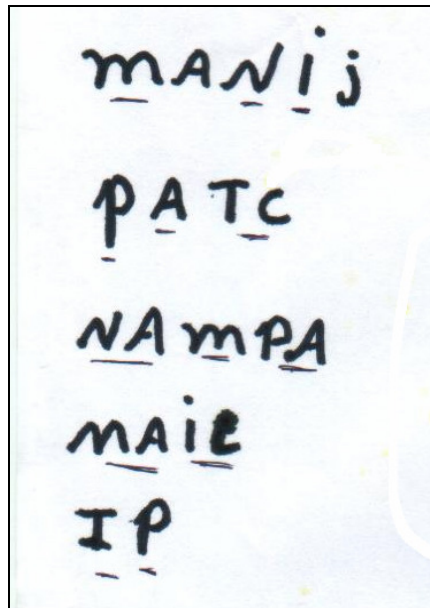 mANij
pATc
NAmPA
mAie
IP